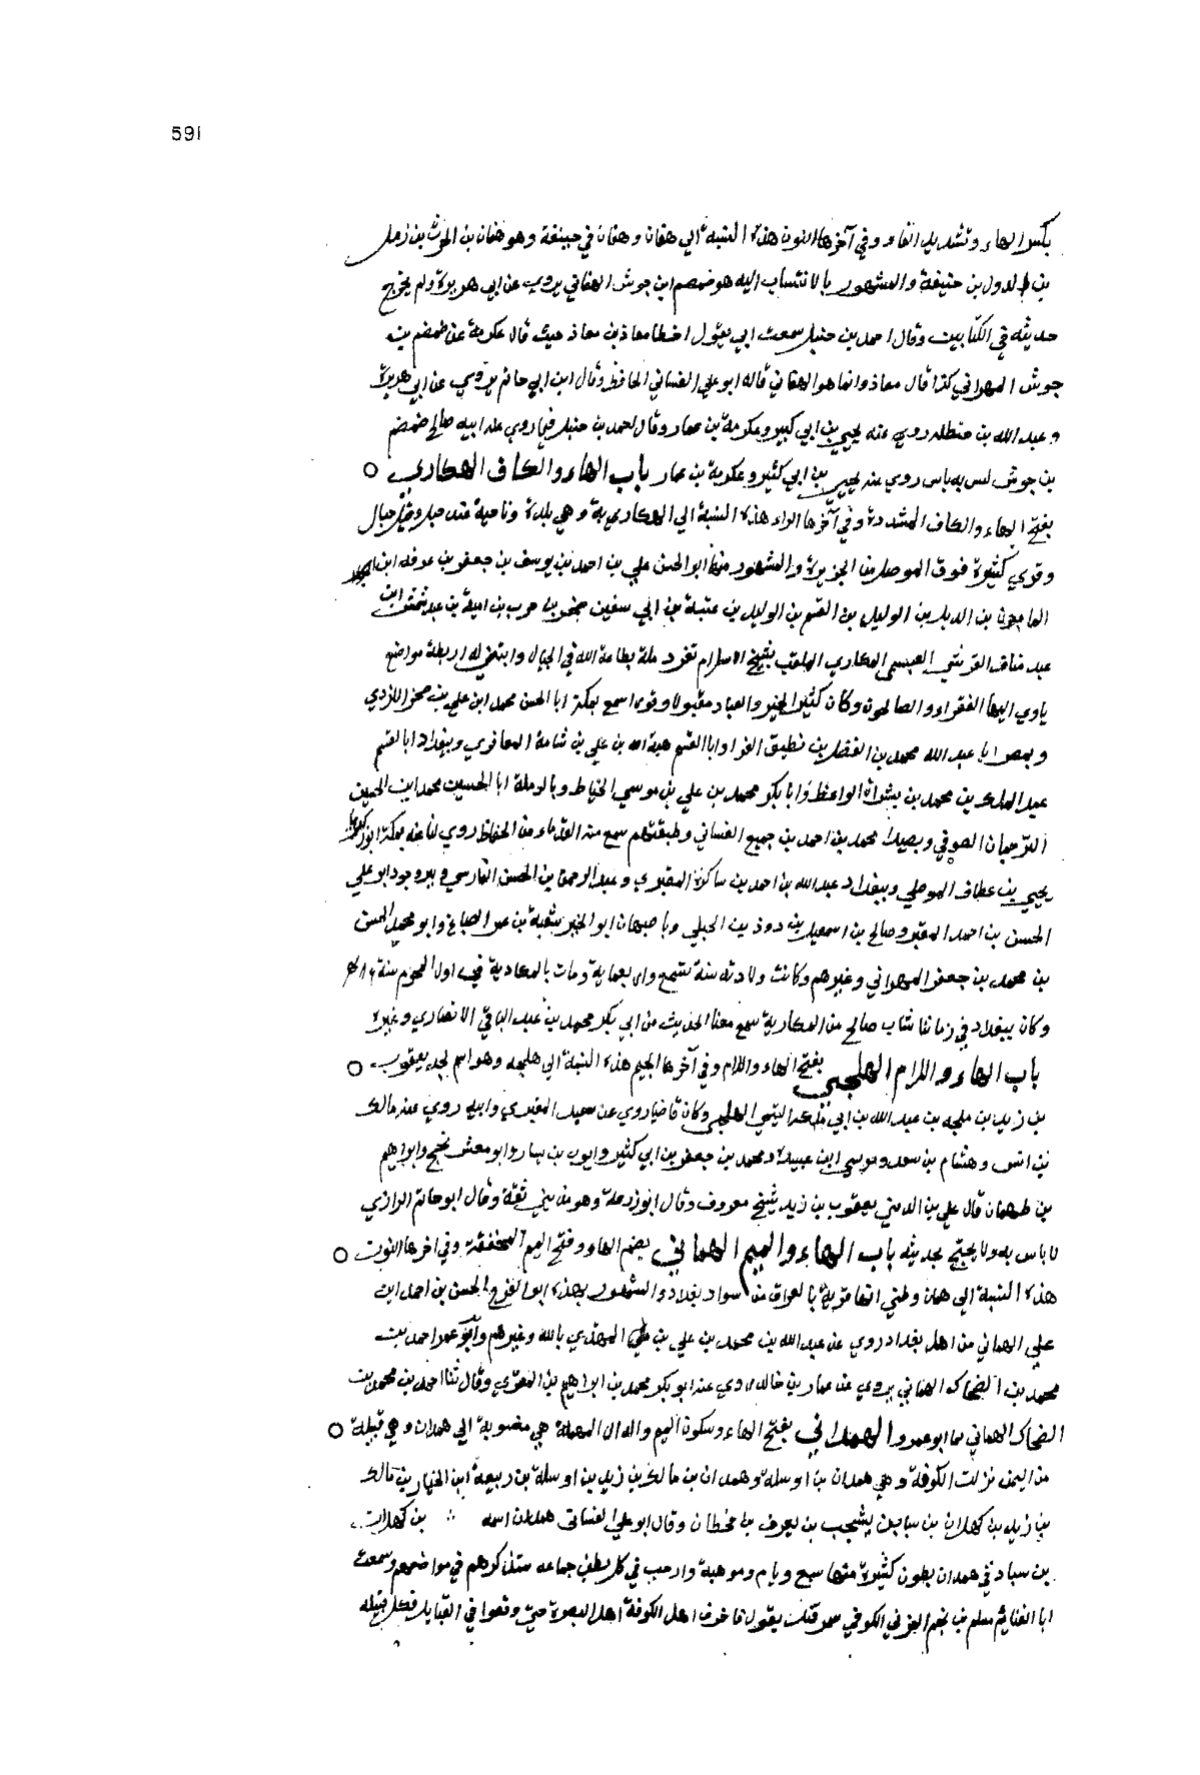 591
بكسر الهاء وتشديد الفاء وفي آخرها النون هذه النسبة الي هفان وهفان في حنيفة وهو هفان بن الحرث بن ذهل
بن الدول بن حنيفة والمشهور بالانتساب اليه هو ضمضم ابن جوش الهفاني يروي عن ابي هريرة ولم يخرج
حديثه في الكتابين وقال احمد بن حنبل سمعت ابي يقول اخطا معاذ بن معاذ حيث قال عكرمة عن ضمضم بن
جوش الهزاني كذا قال معاذ وانما هو الهفاني قاله ابو علي الغساني الحافظ وقال ابن ابي حاتم يروي عن ابي هريرة
وعبد الله بن حنظله روي عنه يحيي بن ابي كبير وعكرمة بن عمار وقال احمد بن حنبل فيما روي عنه ابنه صالح ضمضم
بن جوش لیس به باس روي عنه يحيي بن ابي كثير وعكرمة بن عمار باب الهاء والكاف الهكاري
بفتح الهاء والكاف المشددة وفي آخرها الراء هذه النسبة الي الهكارية وهي بلدة وناحية عند جبل وقيل جبال
وقري كثيرة فوق الموصل من الجزيرة والمشهور منها ابو الحسن علي بن احمد بن يوسف بن جعفر بن عرفه ابن
الماجون بن الديل بن الوليد بن القسم بن الوليد بن عتبة بن ابي سفين صخر بن حرب بن امية بن عبد شمس ابن
عبد مناف القرشي العبسمي الهكاري الملقب بشيخ الاسلام تفرد بطاعة الله في الجبال وابتني له اربطة مواضع
ياوي اليها الفقراء والصالحون وكان كثير الخير والعباد مقبولا وقورا سمع بمكة ابا الحسن محمد ابن علي بن صخر الازدي
وبمصر ابا عبد الله محمد بن الفضل بن نظيف الفرا وابا القسم هبة الله بن علي بن المعافري وببغداد ابا القسم
عبد الملك بن محمد بن بشران الواعظ وابا بكر محمد بن علي بن موسي الخياط وبالرملة ابا الحسين محمد ابن الحسين
الترجمان الصوفي وبصيدا محمد بن احمد بن جميع الغساني وطبقتهم سمع منه القدماء من الحفاظ روي لنا عنه بمكة ابو زكريا
يحيي بن عطاف الموصلي وببغداد عبد الله بن احمد بن المقبري وعبد الرحمن بن الحسن الفارسي وببروجرد ابو علي
الحسن بن احمد المقبر وصالح بن اسمعيل بن الجبلي وباصبهان ابو الخير شعبة بن عمر الصباغ وابو محمد الحسن
بن محمد بن جعفر المهراني وغيرهم وكانت ولادته سنة تسع واربعماية ومات بالهكارية في اول المحرم سنة
وكان ببغداد في زماننا شاب صالح من الهكارية سمع معنا الحديث من ابي بكر محمد بن عبد الباقي الانصاري وغيره
باب الهاء واللام الهلجي بفتح الهاء واللام وفي آخرها الجيم هذه النسبة الي هلجه وهو اسم لجد يعقوب
بن زيد بن هلجه بن عبد الله بن ابي مليكه التيمي الهلجي وكان قاضيا روي عن سعيد المقبري وابيه روي عنه مالك
بن انس وهشام بن سعد وموسي ابن عبيدة ومحمد بن جعفر بن ابي كثير وايوب بن سيار وابو معشر نجيح وابراهيم
بن طهمان قال علي بن المديني يعقوب بن زيد شيخ معروف وقال ابو زرعة وهو مديني ثقة وقال ابو حاتم الرازي
لا باس به ولا يحتج بحديثه باب الهاء والميم الهماني بضم الهاء وفتح الميم المخففة وفي اخرها النون
هذه النسبة الي همان وظني انها قرية بالعراق من سواد بغداد والمشهور بهذه ابو الفرج الحسن بن احمد ابن
علي الهماني من اهل بغداد روي عن عبد الله بن محمد بن علي بن المهتدي بالله وغيرهم وابو عمر احمد بن
محمد بن الضحاك الهماني يروي عن عمار بن خالد روي عنه ابو بكر محمد بن ابراهيم بن المقري وقال ثنا احمد بن محمد بن
الضحاك الهماني بها ابو عمرو الهمداني بفتح الهاء وسكون الميم والدال المهملة هي منسوبة الي همدان وهي قبيلة
من اليمن نزلت الكوفة وهي همدان بن اوسلة وهمدان بن مالك بن زيد بن اوسلة بن ربيعة ابن الخيار بن مالك
بن زيد بن كهلان بن سبا بن يشجب بن يعرب بن قحطان وقال ابو علي الغساني همدان اسمه بن كهلان
بن سبا وفي همدان بطون كثيرة منها سبع ويام وموهبة وارحب في كل بطن جماعه سنذكرهم في مواضعهم وسمعت
ابا الغنايم مسلم بن نجم الكوفي بسمرقند يقول فاخرت اهل الكوفة اهل البصرة حتي وقعوا في القبايل فكل قبيلة